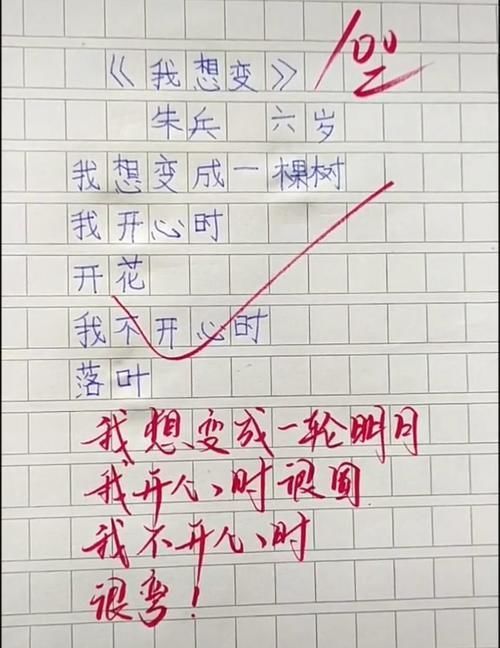 《我想变》
100
朱兵 六岁
我想变成一棵树
我开心时
开花
我不开心时
落叶
我想变成一轮明月
我开心时很圆
我不开心时
很弯！